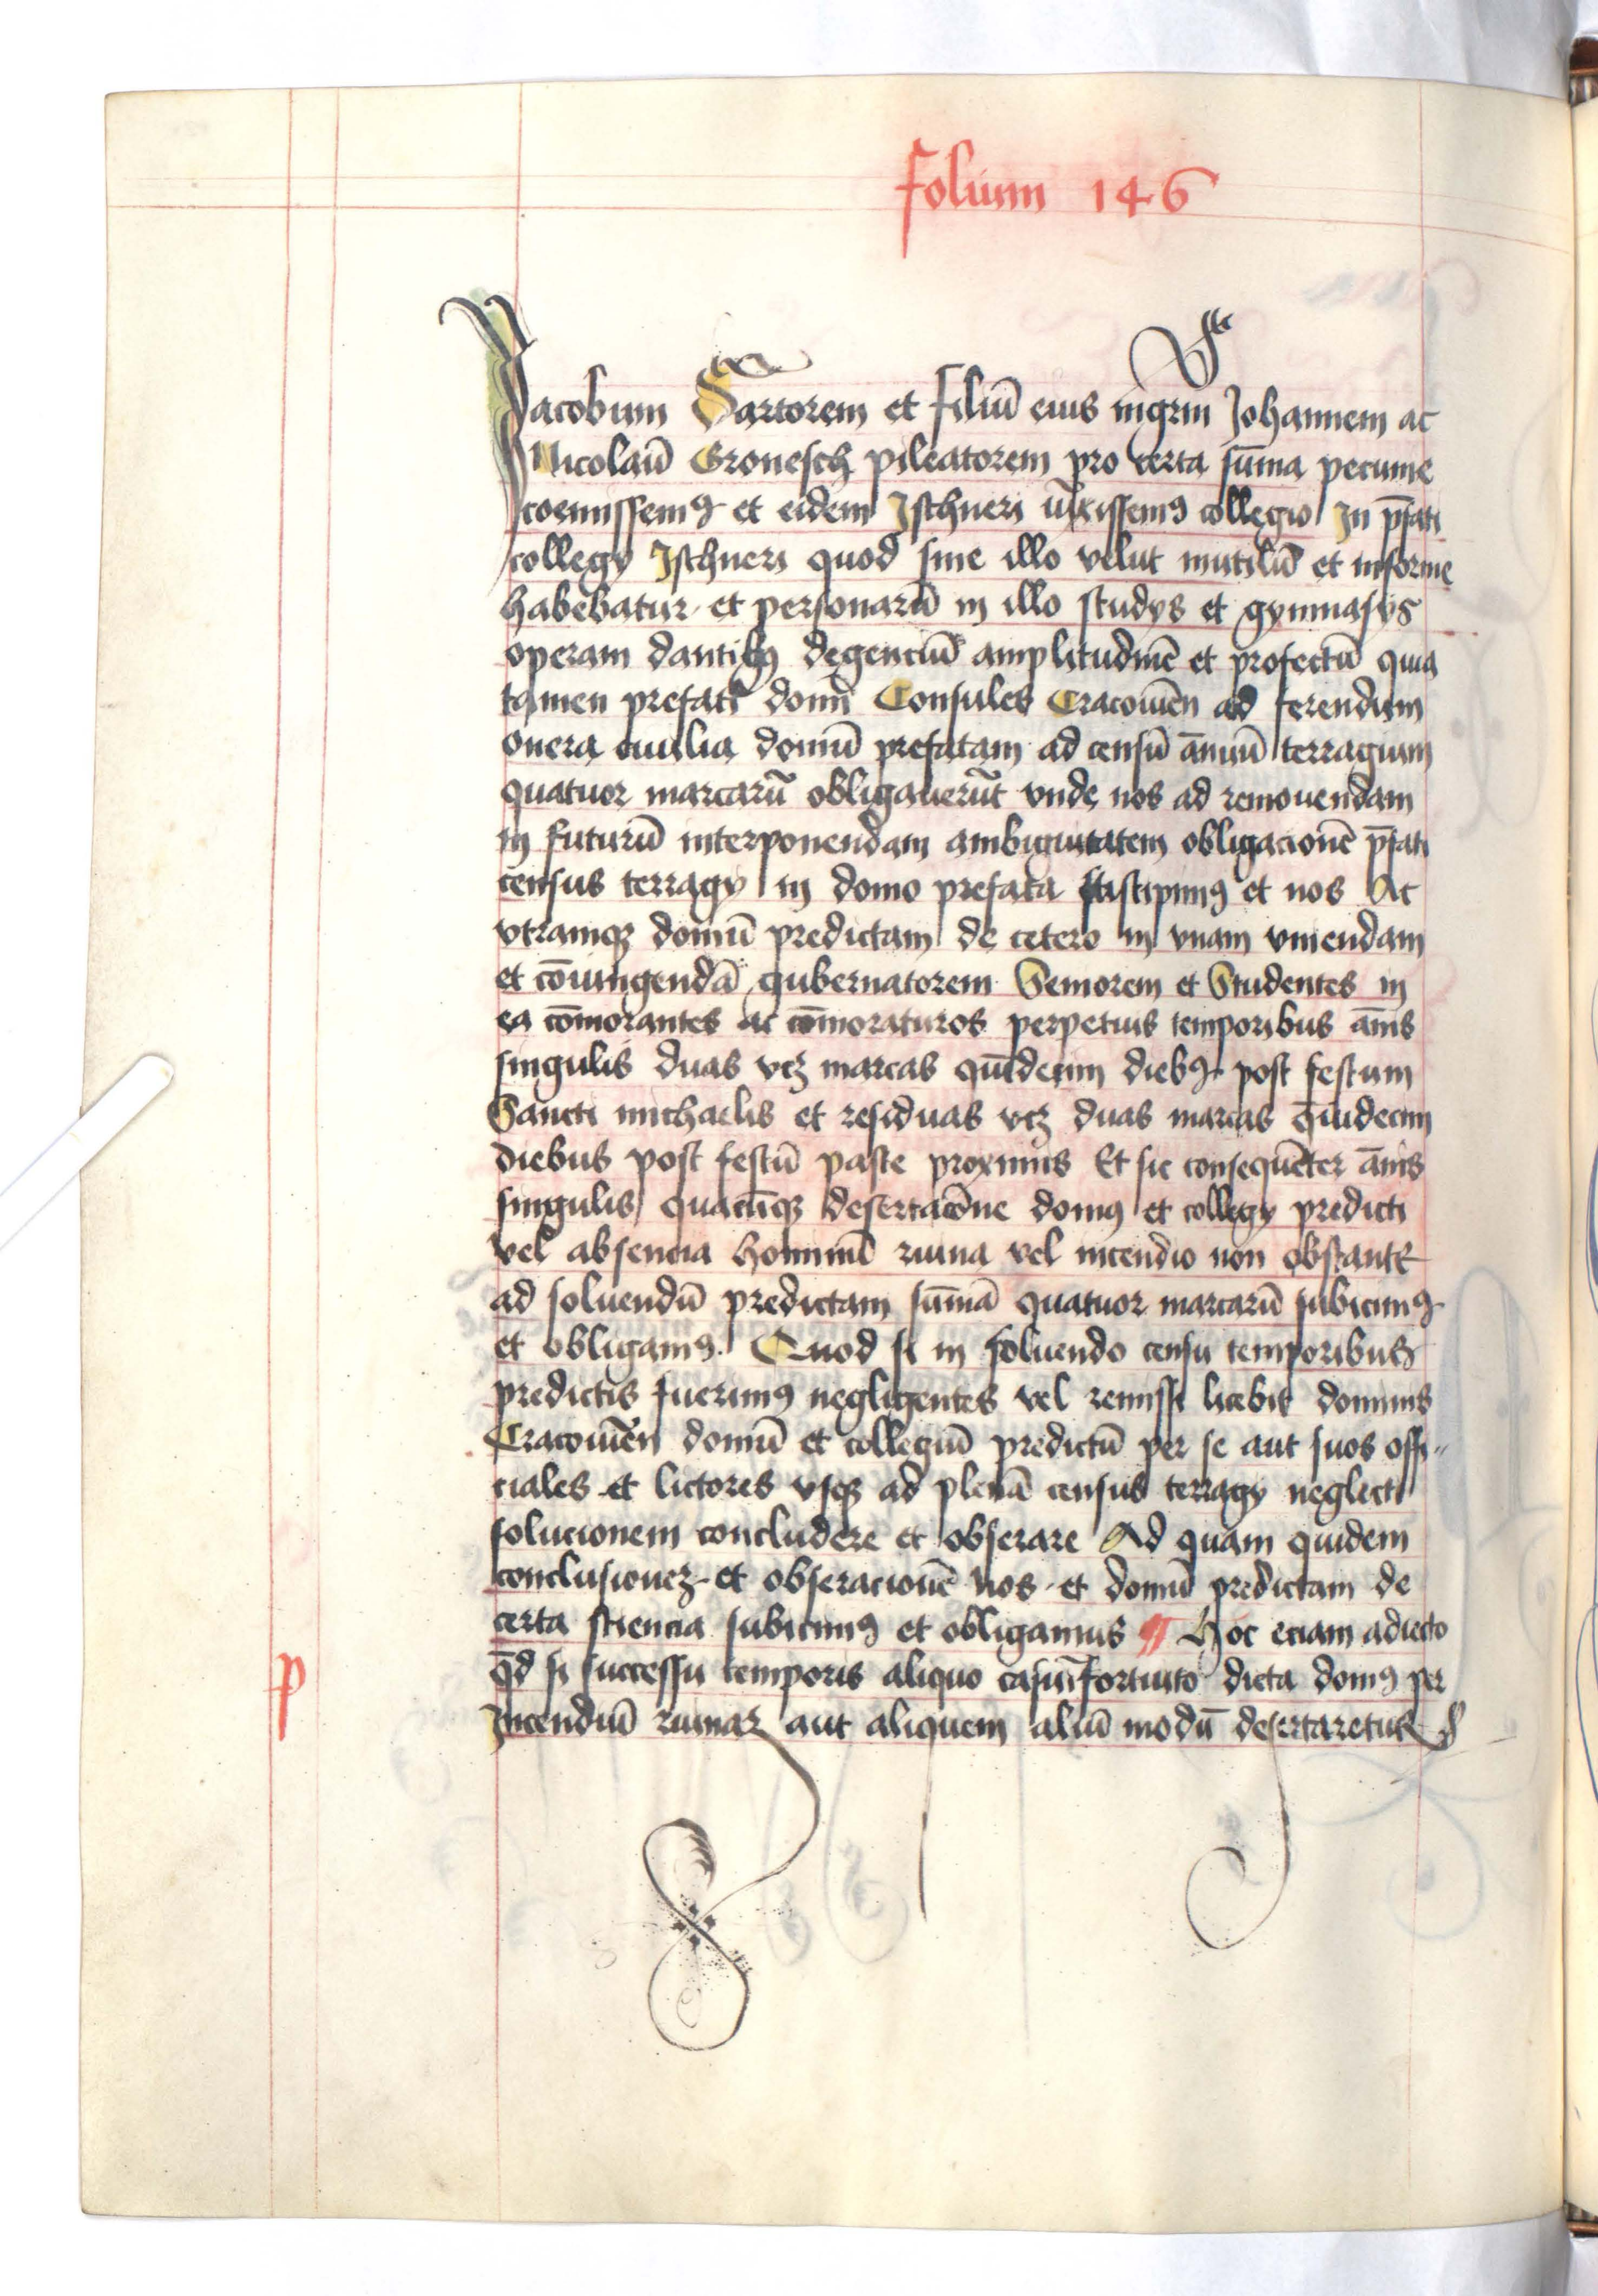 folium 146
Jacobum Sartorem et filiū eius mgrm Johannem ac
Nicolaū Gronesch pileatorem pro certa sūma pecunie
coemissemꝰ et eidem Jschneri iūxissemꝰ collegio Jn p̄fati
collegy Jschneri quod sine illo velut mutilū et informe
habebatur et personarū in illo studys et gymnasys
operam dantibꝫ degenciū amplitudinē et profectū quia
tamen prefati domī Consules Cracouieñ ad ferendum
onera ciuilia domū prefatam ad censū ānuū terragium
quatuor marcarū obligauerūt vnde nos ad remouendam
in futurū interponendam ambiguitatem obligacionē p̄fati
census terragy in domo prefata suscipimꝰ et nos Ac
vtramqꝫ domū predictam de cetero in vnam vniendam
et cōiungendā gubernatorem Seniorem et Studentes in
ea cōmorantes ac cōmoraturos perpetuis temporibus ānis
singulis duas vcꝫ marcas quīdecim diebꝰ post festum
Sancti michaelis et residuas vcꝫ duas marcas quīdecim
diebus post festū pasce proximis Et sic consequēter ānis
singulis quacūqꝫ desertacōne domꝰ et collegy predicti
vel absencia hominū ruina vel incendio non obstante
ad soluendū predictam sūmā quatuor marcarū subicimꝰ
et obligamꝰ. Quod si in soluendo censu temporibus
predictis fuerimꝰ negligentes vel remissi licebit dominis
Cracouieñ domū et collegiū predictū per se aut suos offi-
ciales et lictores vsqꝫ ad plenā census terragy neglecti
solucionem concludere et obserare Ad quam quidem
conclusioneꝫ et obseracionē nos et domū predictam de
certa sciencia subicimꝰ et obligamus ¶ Hoc eciam adiecto
qd̄ si successu temporis aliquo casu fortuito dicta domꝰ per
P
Jncendiū ruinaꝫ aut aliquem aliū modū desertaretur